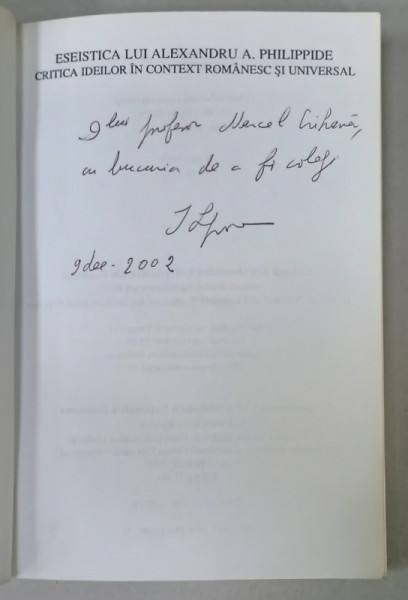 ESEISTICA LUI ALEXANDRU A. PHILIPPIDE
CRITICA IDEILOR ÎN CONTEXT ROMÂNESC ȘI UNIVERSAL
Dlui profesor Marcel Crihană,
cu bucuria de a fi colegi
9 dec. 2002